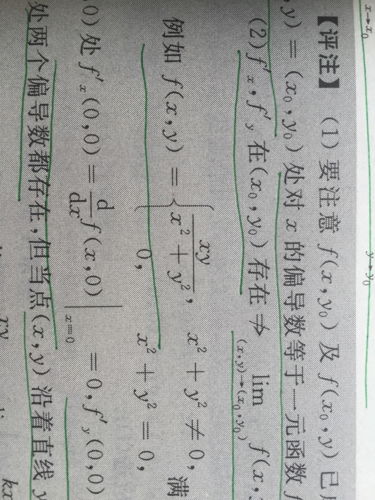 x→x₀ y→y₀
【评注】 (1) 要注意 f(x,y₀) 及 f(x₀,y) 已
,y) = (x₀,y₀) 处对 x 的偏导数等于一元函数
(2) f′ₓ,f′ᵧ 在(x₀,y₀) 存在 ⇏ lim f(x,
(x,y)→(x₀,y₀)
例如 f(x,y) = { xy/(x² + y²), x² + y² ≠ 0, 满
0, x² + y² = 0,
0) 处 f′ₓ(0,0) = d/dx f(x,0)|ₓ₌₀ = 0,f′ᵧ(0,0)
处两个偏导数都存在,但当点(x,y) 沿着直线 y
xy
kx